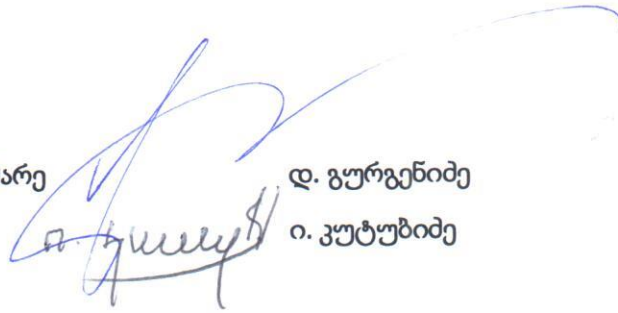 არე დ. გურგენიძე
ი. კუტუბიძე